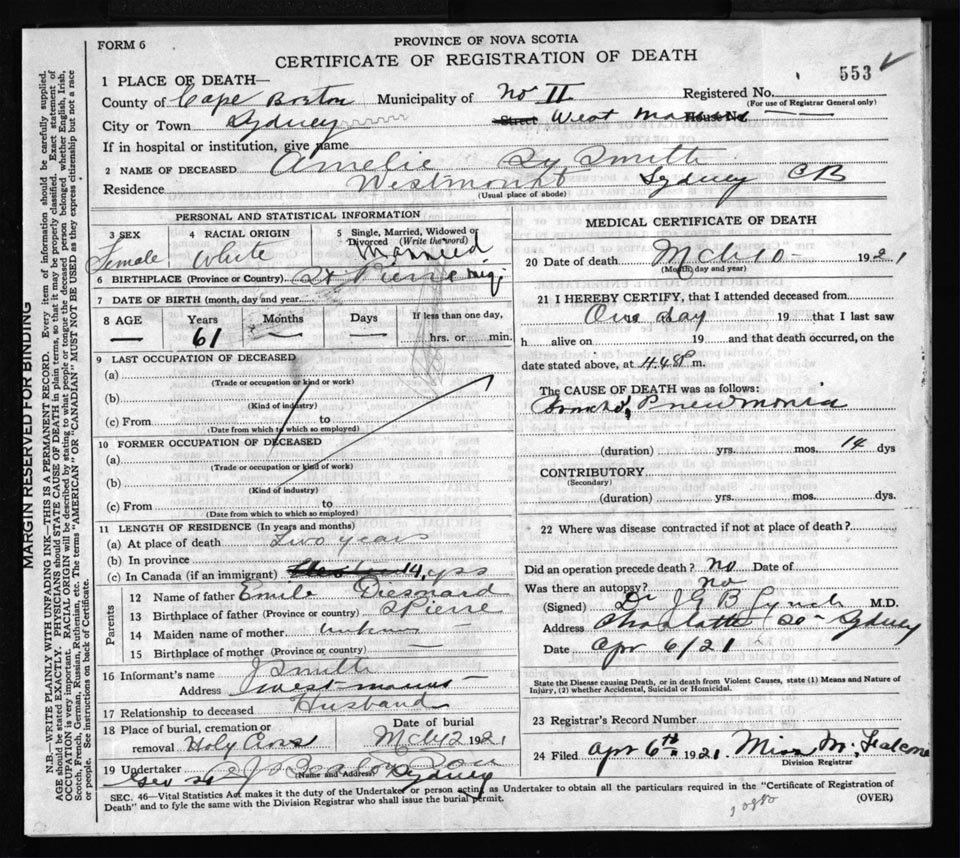 FORM 6
PROVINCE OF NOVA SCOTIA
CERTIFICATE OF REGISTRATION OF DEATH
553
1 PLACE OF DEATH—
County of Cape Breton Municipality of No II Registered No.
(For use of Registrar General only)
City or Town Sydney Street West House No.
If in hospital or institution, give name
2 NAME OF DECEASED Amelie Smith
Residence Westmount Sydney CB
(Usual place of abode)
PERSONAL AND STATISTICAL INFORMATION
3 SEX Female
4 RACIAL ORIGIN White
5 Single, Married, Widowed or Divorced (Write the word) Married
6 BIRTHPLACE (Province or Country) St Pierre Miq
7 DATE OF BIRTH (month, day and year)
8 AGE — Years 61 Months — Days — If less than one day, hrs. or min.
9 LAST OCCUPATION OF DECEASED
(a)
(Trade or occupation or kind or work)
(b)
(Kind of industry)
(c) From to
(Date from which to which so employed)
10 FORMER OCCUPATION OF DECEASED
(a)
(Trade or occupation or kind of work)
(b)
(Kind of industry)
(c) From to
(Date from which to which so employed)
11 LENGTH OF RESIDENCE (In years and months)
(a) At place of death two years
(b) In province
(c) In Canada (if an immigrant) 14 yrs
Parents
12 Name of father Emile
13 Birthplace of father (Province or country) St Pierre
14 Maiden name of mother unknown
15 Birthplace of mother (Province or Country) —
16 Informant's name J Smith
Address
17 Relationship to deceased Husband
18 Place of burial, cremation or removal Holy Cross Date of burial Mch 12 1921
19 Undertaker Sydney
(Name and Address)
MEDICAL CERTIFICATE OF DEATH
20 Date of death Mch 10 1921
(Month, day and year)
21 I HEREBY CERTIFY, that I attended deceased from
One day 19 that I last saw
h alive on 19 and that death occurred, on the
date stated above, at 4.45 P m.
The CAUSE OF DEATH was as follows:
Broncho Pneumonia
(duration) yrs. mos. 14 dys
CONTRIBUTORY
(Secondary)
(duration) yrs. mos. dys.
22 Where was disease contracted if not at place of death?
Did an operation precede death? no Date of
Was there an autopsy? no
(Signed) Dr J G B Lynch M.D.
Address Charlotte St Sydney
Date Apr 6/21
State the Disease causing Death, or in death from Violent Causes, state (1) Means and Nature of
Injury, (2) whether Accidental, Suicidal or Homicidal.
23 Registrar's Record Number
24 Filed Apr 6th 1921. Miss M.
Division Registrar
SEC. 46—Vital Statistics Act makes it the duty of the Undertaker or person acting as Undertaker to obtain all the particulars required in the "Certificate of Registration of
Death" and to fyle the same with the Division Registrar who shall issue the burial permit.
(OVER)
MARGIN RESERVED FOR BINDING
N.B.—WRITE PLAINLY WITH UNFADING INK—THIS IS A PERMANENT RECORD. Every item of information should be carefully supplied.
AGE should be stated EXACTLY. PHYSICIANS should STATE CAUSE OF DEATH in plain terms, so that it may be properly classified. Exact statement of
OCCUPATION is very important. RACIAL ORIGIN will be described by stating to what people or tongue the deceased person belonged whether English, Irish,
Scotch, French, German, Russian, Ruthenian, etc. The terms "AMERICAN" OR "CANADIAN" MUST NOT BE USED as they express citizenship but not a race
or people. See instructions on back of Certificate.